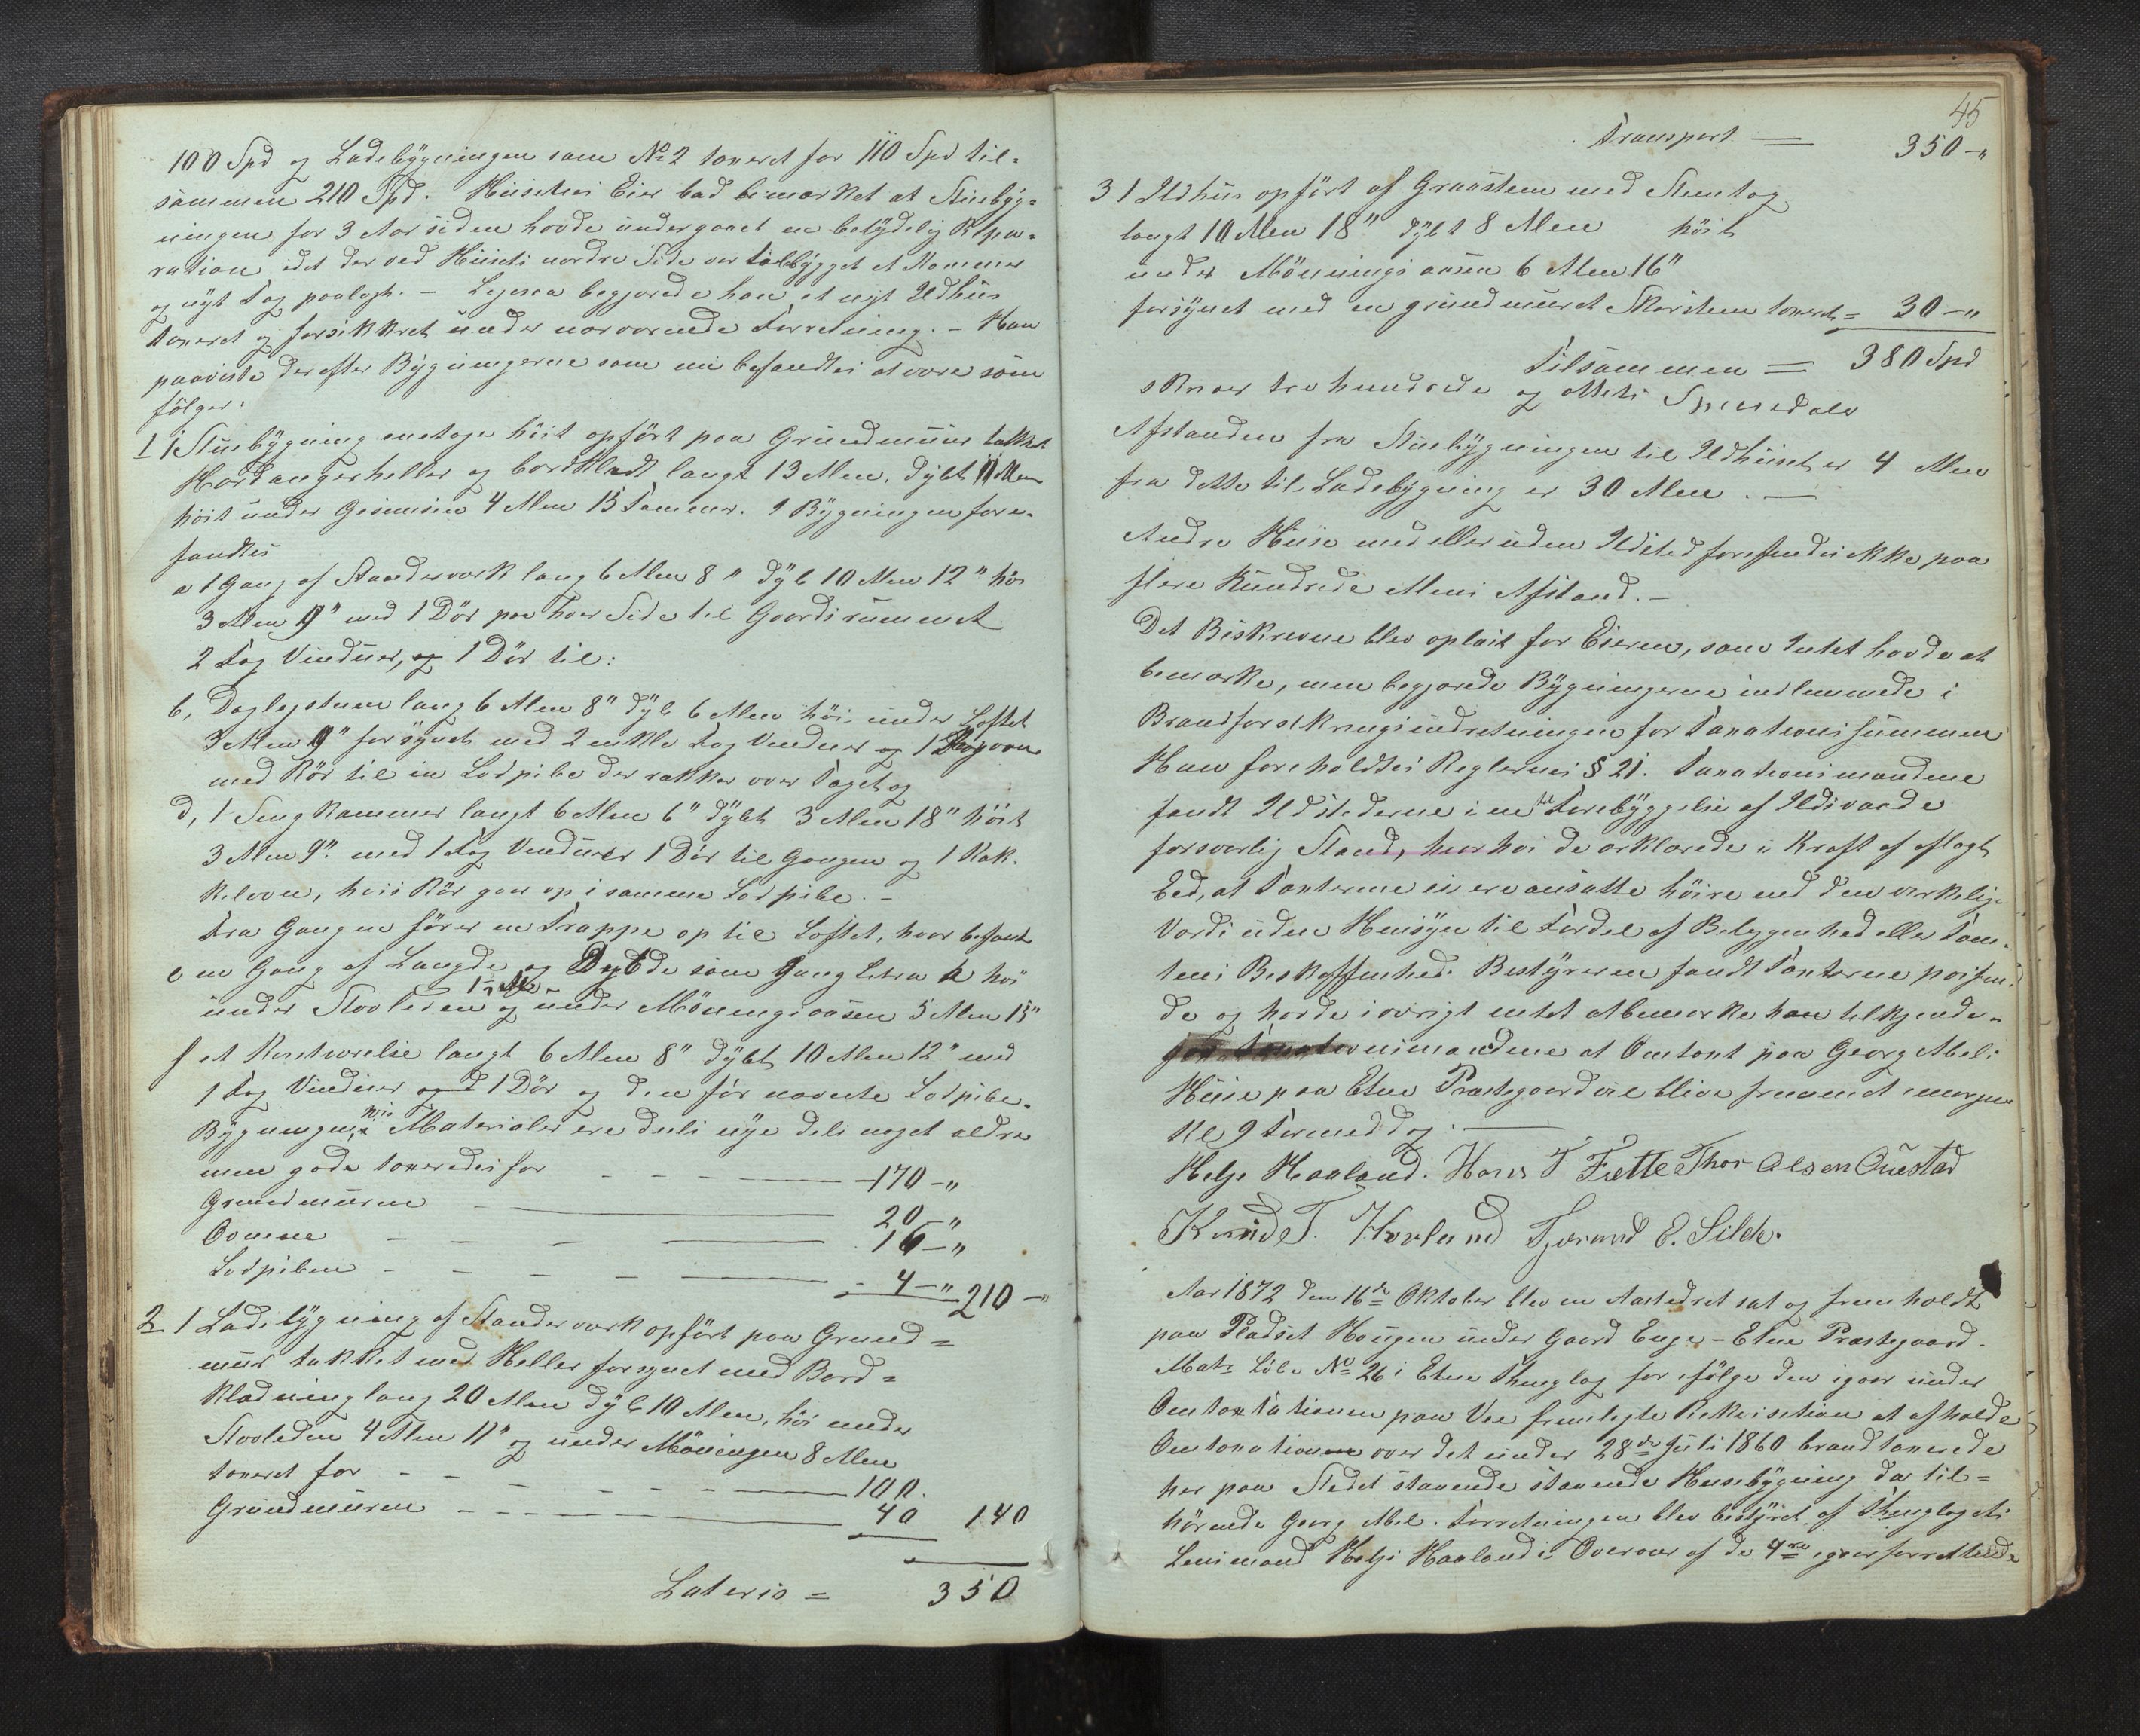 100 Spd og Ladebygningen som No 2 taxeret for 110 Spd til-
sammen 210 Spd. Husenes Eier bad bemærket at Stuebyg-
ningen for 3 Aar siden havde undergaaet en betydelig Repa-
ration idet der ved Husets nordre Side var tilbygget et Kammer
og nyt Tag paalagt. - Ligesaa begjærede han et nyt Ildhus
taxeret og forsikkret under nærværende Forretning. - Han
paaviste derefter Bygningerne som nu befandtes at være som
følger:
1 1 Stuebygning enetages høit opført paa Grundmuur takket
Hardangerheller og bordklædt langt 13 Alen, dybt 11 Alen
høit under Gesimsen 4 Alen 15 Tommer. I Bygningen fore-
fandtes
a 1 Gang af Standerværk lang 6 Alen 8" dyb 10 Alen 12" høi
3 Alen 9" med 1 Dør paa hver Side til Gaardsrummet
2 Fag Vinduer, og 1 Dør til:
b, Dagligstuen lang 6 Alen 8" dyb 6 Alen høi under Loftet
3 Alen 9" forsynet med 2 enkle Fag Vinduer og 1
med Rør til en Lodpibe der rækker over Taget og
d, 1 Sengkammer langt 6 Alen 6" dybt 3 Alen 18" høit
3 Alen 9" med 1 Fag Vinduer 1 Dør til Gangen og 1 Kak-
kelovn, hvis Rør gaar op i samme Lodpibe. -
Fra Gangen fører en Trappe op til Loftet, hvor befandt
e en Gang af Længde og Dybde som Gang Litra a høi
under Stavleien 1 1/2 Al. og under Mønningsaasen 5 Alen 15"
f et Væreværelse langt 6 Alen 8" dybt 10 Alen 12" med
1 Fag Vinduer og 1 Dør og den før nævnte Lodpibe.
Bygningen, hvis Materialer ere deels nye deels noget ældre
men gode taxeredes for - - - - 170 - "
Grundmuren - 20 - "
Ovnene - - - - 16 - "
Lodpiben - - - - - 4 - " 210 - "
2 1 Ladebygning af Standerværk opført paa Grund=
muur takket med Heller forsynet med Bord=
klædning lang 20 Alen dyb 10 Alen, høi under
Stavleden 4 Alen 11" og under Mønningen 8 Alen
taxeret for - - - - - - 100.
Grundmuren - - - - 40 140
Lateris = 350
45
Transport = 350 - "
3 1 Ildhus opført af Graasteen med Steentag
langt 10 Alen 18" dybt 8 Alen høit
under Mønningsaasen 6 Alen 16"
forsynet med en grundmuret Skorsteen taxeret = 30 - "
Tilsammen = 380 Spd
skriver tre hundrede og otteti Speciedaler
Afstanden fra Stuebygningen til Ildhuset er 4 Alen
fra dette til Ladebygning er 30 Alen. -
Andre Huse med eller uden Ildsted forefandtes ikke paa
flere Hundrede Alens Afstand. -
Det Beskrevne blev oplæst for Eieren, som Intet havde at
bemærke, men begjærede Bygningerne indlemmede i
Brandforsikringsindretningen for Taxationssummen
Han foreholdtes Reglernes § 21. Taxationsmændene
fandt Ildstederne i en til Forebyggelse af Ildsvaade
forsvarlig Stand, hvorhos de erklærede i Kraft af aflagt
Eed, at Taxterne ei ere ansatte høire end den virkelige
Værdi uden Hensyn til Fordel af Beliggenhed eller Tom-
tens Beskaffenhed. Bestyreren fandt Taxterne passen-
de og havde i øvrigt intet at bemærke han tilkjende-
gav Taxationsmændene at Omtaxt paa Georg Abels
Huse paa Etne Præstegaard vil blive fremmet i morgen
Kl 9 Formeddag.
Helje Haaland. Hans T Fætte Thor Olsen Østad
Knud T. Havland Gjermund E. Silde.
Aar 1872 den 16de Oktober blev en Aastedret sat og fremholdt
paa Pladset Haugen under Gaard Enge - Etne Præstegaard.
Matr. Løbe No 26 i Etne Thinglag for ifølge den igaar under
Omtaxationen paa Vee fremlagte Rekvisition at afholde
Omtaxationen over det under 28de Juli 1860 brandtaxerede
her paa Stedet staaende staaende Husebygning da til=
hørende Georg Abel. Forretningen blev bestyret af Thinglagets
Lensmand Helje Haaland i Overvær af de 4re igaar forrettende